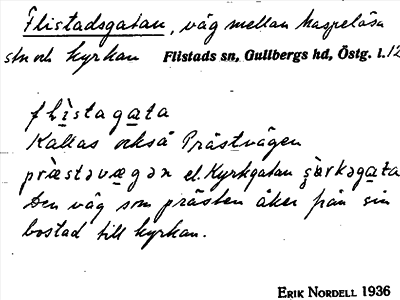 Flistadsgatan, väg mellan Maspelösa
sn och kyrkan Flistads sn, Gullbergs hd, Östg. l. 12
flìstagata
Kallas också Prästvägen
præ̀stəvægən el. Kyrkgatan ʂɵ̀rkəgata
Den väg som prästen åker från sin
bostad till kyrkan.
ERIK NORDELL 1936